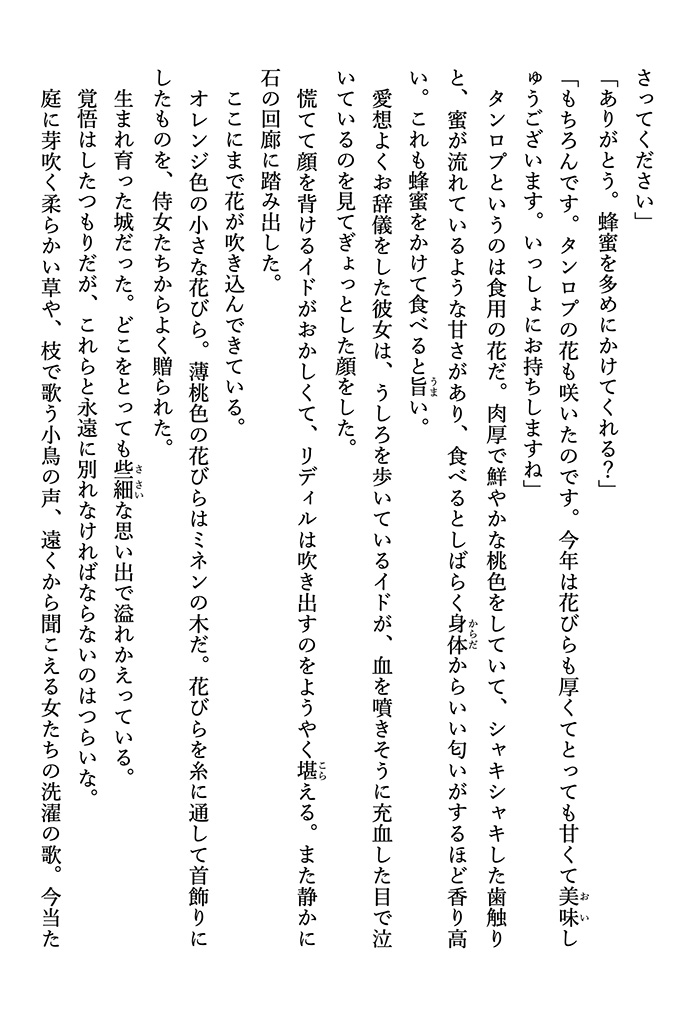 さってください」
「ありがとう。蜂蜜を多めにかけてくれる？」
「もちろんです。タンロプの花も咲いたのです。今年は花びらも厚くてとっても甘くて美味し
ゅうございます。いっしょにお持ちしますね」
タンロプというのは食用の花だ。肉厚で鮮やかな桃色をしていて、シャキシャキした歯触り
と、蜜が流れているような甘さがあり、食べるとしばらく身体からいい匂いがするほど香り高
い。これも蜂蜜をかけて食べると旨い。
愛想よくお辞儀をした彼女は、うしろを歩いているイドが、血を噴きそうに充血した目で泣
いているのを見てぎょっとした顔をした。
慌てて顔を背けるイドがおかしくて、リディルは吹き出すのをようやく堪える。また静かに
石の回廊に踏み出した。
ここにまで花が吹き込んできている。
オレンジ色の小さな花びら。薄桃色の花びらはミネンの木だ。花びらを糸に通して首飾りに
したものを、侍女たちからよく贈られた。
生まれ育った城だった。どこをとっても些細な思い出で溢れかえっている。
覚悟はしたつもりだが、これらと永遠に別れなければならないのはつらいな。
庭に芽吹く柔らかい草や、枝で歌う小鳥の声、遠くから聞こえる女たちの洗濯の歌。今当た